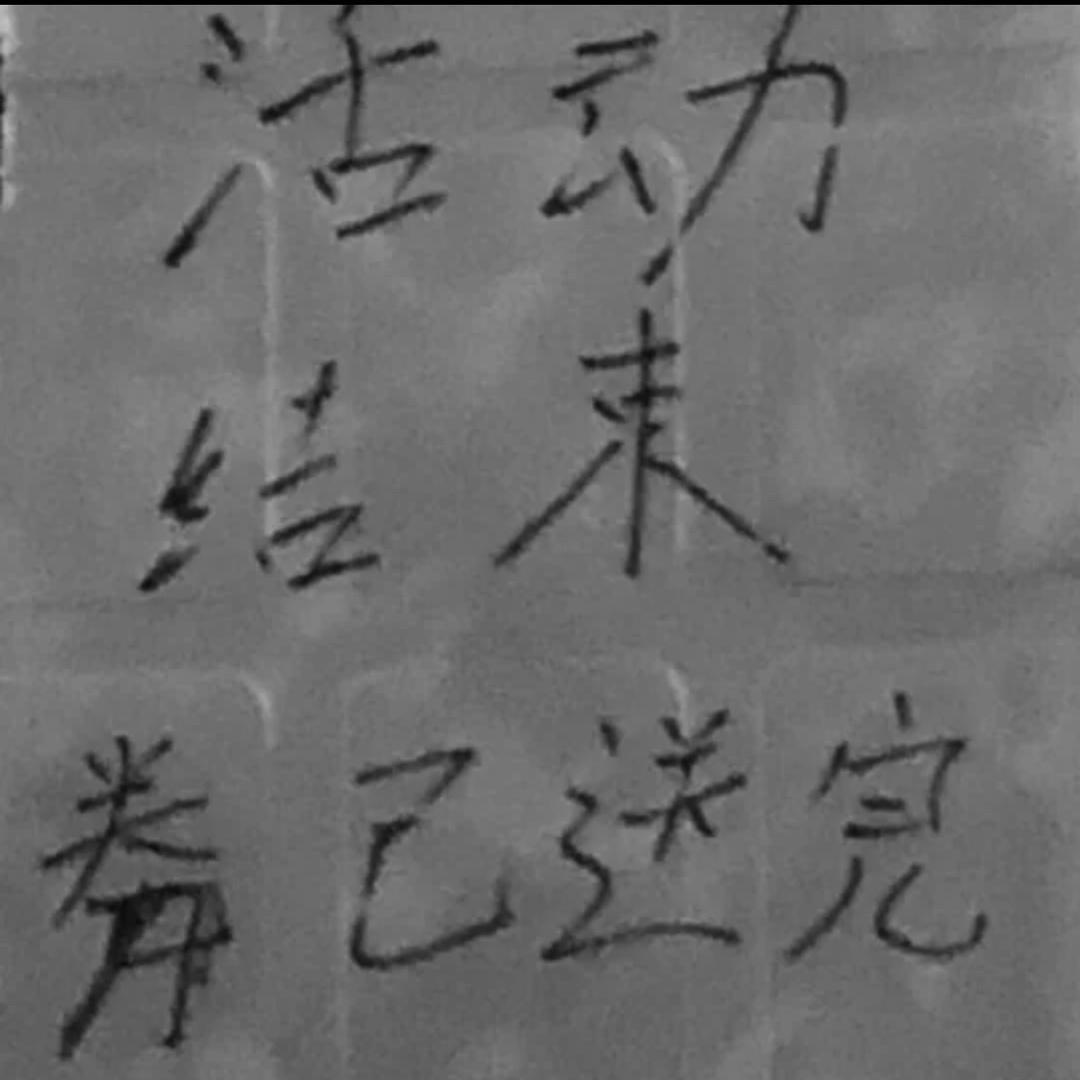 活动
结束
券已送完